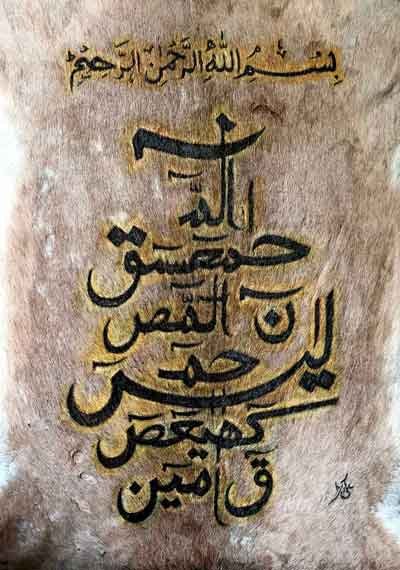 بِسْمِ اللهِ الرَّحْمٰنِ الرَّحِيْمِ
حمعسق
ن المّص
يس
حم
كهيعص
ق امين